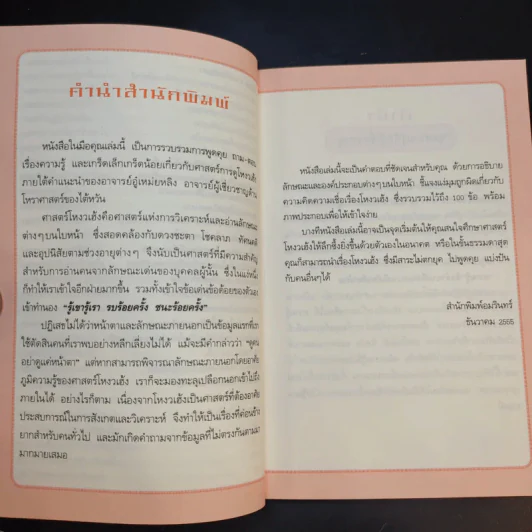 คำนำสำนักพิมพ์
หนังสือในมือคุณเล่มนี้ เป็นการรวบรวมการพูดคุย ถาม-ตอบ
เรื่องความรู้ และเกร็ดเล็กเกร็ดน้อยเกี่ยวกับศาสตร์การดูโหงวเฮ้ง
ภายใต้คำแนะนำของอาจารย์อู๋เหม่ยหลิง อาจารย์ผู้เชี่ยวชาญด้าน
โหราศาสตร์ของไต้หวัน
ศาสตร์โหงวเฮ้งคือศาสตร์แห่งการวิเคราะห์และอ่านลักษณะ
ต่างๆบนใบหน้า ซึ่งสอดคล้องกับดวงชะตา โชคลาภ ทัศนคติ
และอุปนิสัยตามช่วงอายุต่างๆ จึงนับเป็นศาสตร์ที่มีความสำคัญ
สำหรับการอ่านคนจากลักษณะเด่นของบุคคลผู้นั้น ซึ่งในแง่หนึ่ง
ก็ทำให้เราเข้าใจอีกฝ่ายมากขึ้น รวมทั้งเข้าใจข้อเด่นข้อด้อยของตัวเอง
เข้าทำนอง “รู้เขารู้เรา รบร้อยครั้ง ชนะร้อยครั้ง”
ปฏิเสธไม่ได้ว่าหน้าตาและลักษณะภายนอกเป็นข้อมูลแรกที่เรา
ใช้ตัดสินคนที่เราพบอย่างหลีกเลี่ยงไม่ได้ แม้จะมีคำกล่าวว่า “ดูคน
อย่าดูแค่หน้าตา” แต่หากสามารถพิจารณาลักษณะภายนอกโดยอาศัย
ภูมิความรู้ของศาสตร์โหงวเฮ้ง เราก็จะมองทะลุเปลือกนอกเข้าไปถึง
ภายในได้ อย่างไรก็ตาม เนื่องจากโหงวเฮ้งเป็นศาสตร์ที่ต้องอาศัย
ประสบการณ์ในการสังเกตและวิเคราะห์ จึงทำให้เป็นเรื่องที่ค่อนข้าง
ยากสำหรับคนทั่วไป และมักเกิดคำถามจากข้อมูลที่ไม่ตรงกันตามมา
มากมายเสมอ
หนังสือเล่มนี้จะเป็นคำตอบที่ชัดเจนสำหรับคุณ ด้วยการอธิบาย
ลักษณะและองค์ประกอบต่างๆบนใบหน้า ชี้แจงแง่มุมถูกผิดเกี่ยวกับ
ความคิดความเชื่อเรื่องโหงวเฮ้ง ซึ่งรวบรวมไว้ถึง 100 ข้อ พร้อม
ภาพประกอบเพื่อให้เข้าใจง่าย
บางทีหนังสือเล่มนี้อาจเป็นจุดเริ่มต้นให้คุณสนใจศึกษาศาสตร์
โหงวเฮ้งให้ลึกซึ้งยิ่งขึ้นด้วยตัวเองในอนาคต หรือในชั้นธรรมดาสุด
คุณก็สามารถนำเรื่องโหงวเฮ้ง ซึ่งมีสาระไม่ตกยุค ไปพูดคุย แบ่งปัน
กับคนอื่นๆได้
สำนักพิมพ์อมรินทร์
ธันวาคม 2555